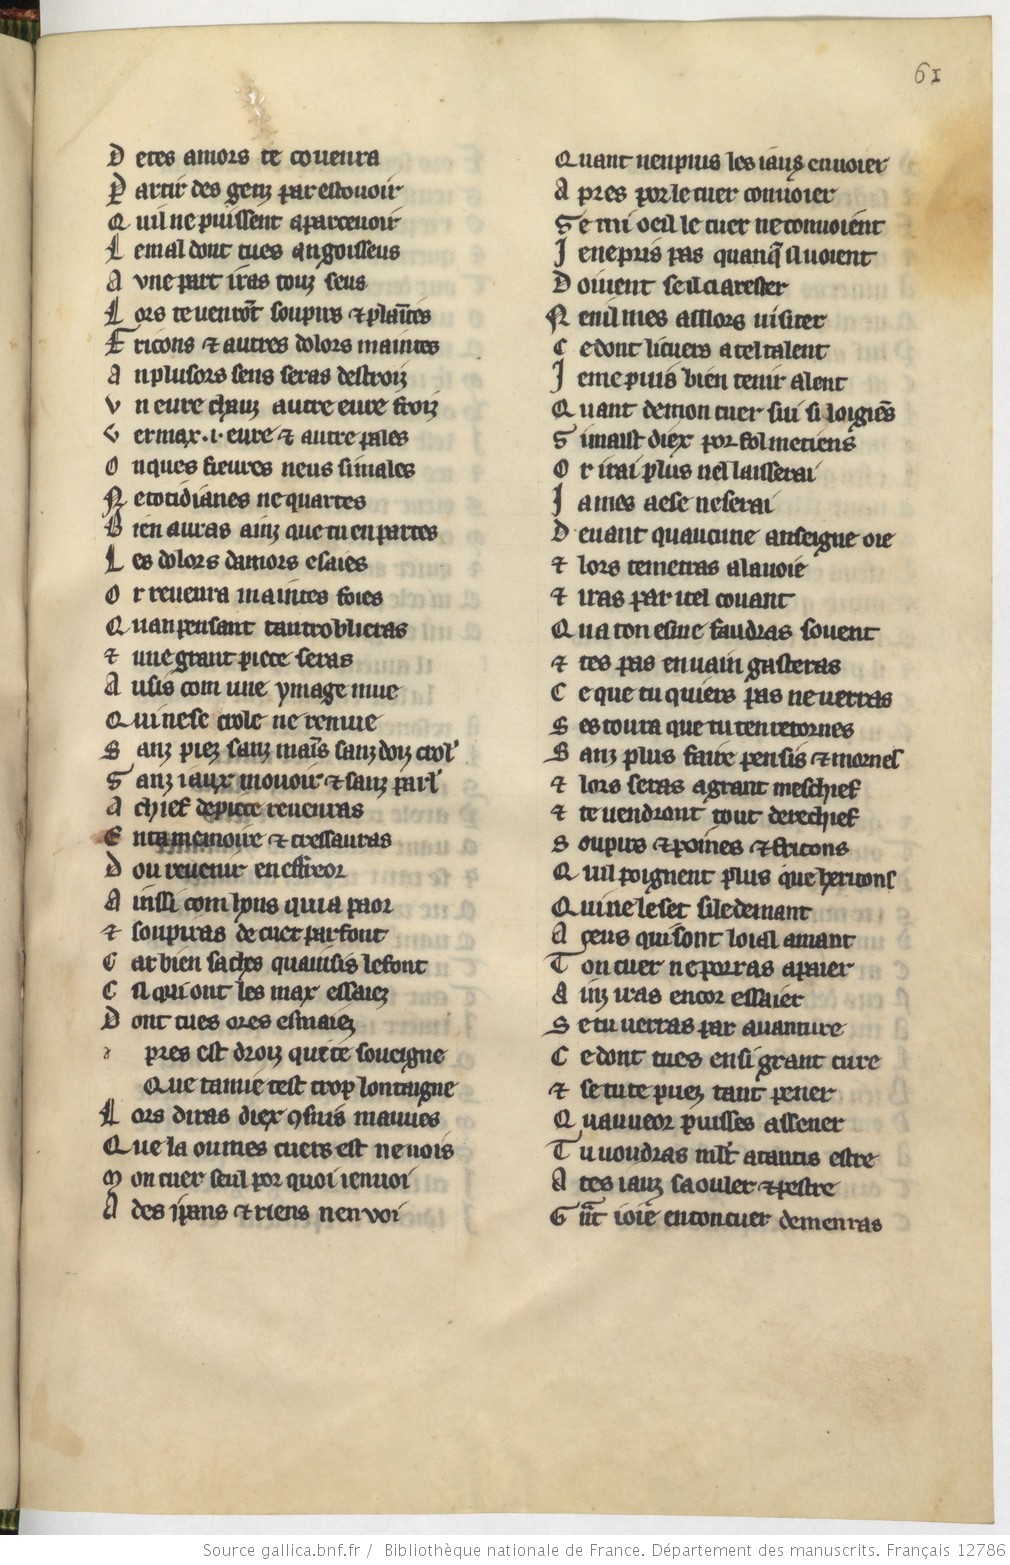 61
D etes amors te couenra
P artir des genz par estouoir
Q uil ne puissent aparceuoir
L e mal dont tu es angoisseus
A vne part iras touz seus
L ors te uenrōt souspirs ⁊ plaītes
F ricons ⁊ autres dolors maintes
A n plusors sens seras destroiz
V n eure chauz autre eure froiz
V ermax .i. eure ⁊ autre pales
O nques fieures neus si males
N e cotidianes ne quartes
B ien auras ainz que tu en partes
L es dolors damors esaies
O r reuenra maintes foies
Q uan pensant tantroblieras
⁊ une grant piece seras
A usis com une ymage mue
Q ui ne se crole ne remue
S anz piez sanz maīs sanz doiz crol'
S anz iaux mouoir ⁊ sanz parl'
A chief de piece reuenras
E n ta memoire ⁊ tressauras
D ou reuenir en effreor
A inssi com hons qui a paor
⁊ soupiras de cuer parfont
C ar bien saches quainsis le font
C il qui ont les max essaiez
D ont tu es ores esmaiez
a pres est droiz quil te soueigne
Que tamie test trop lontaigne
L ors diras diex ꝯ suis mauues
Q ue la ou mes cuers est ne uois
M on cuer seul por quoi ienuoi
A des i pans ⁊ riens nen voi
Q uant ne puis les iauz enuoier
A pres por le cuer conuoier
S e mi oeil le cuer ne conuoient
J e ne pris pas quanq̄ il uoient
D oiuent se il ci arester
N enil mes aillors uisiter
C e dont li cuers a tel talent
J e me puis bien tenir a lent
Q uant de mon cuer sui si loigiēs
S i maist diex por fol me tiens
O r irai plus nel laisserai
J ames aese ne serai
D euant quaucune anseigne oie
⁊ lors te metras a la uoie
⁊ iras par itel couant
Q ua ton esme faudras souent
⁊ tes pas en uain gasteras
C e que tu quiers pas ne uerras
S es toura que tu ten retornes
S anz plus faire pensis ⁊ mornes
⁊ lors seras a grant meschief
⁊ te uendront tout derechief
S oupirs ⁊ poines ⁊ fricons
Q uil poignent plus que hericons
Q ui ne le set sile demant
A ceus qui sont loial amant
T on cuer ne porras apaier
A inz iras encor essaier
S e tu uerras par auanture
C e dont tu es en si grant cure
⁊ se tu te puez tant pener
Q uau ueor puisses assener
T u uoudras mlt' atantis estre
A tes iauz saouler ⁊ pestre
G nt ioie en ton cuer demenras
Source gallica.bnf.fr / Bibliothèque nationale de France. Département des manuscrits. Français 12786